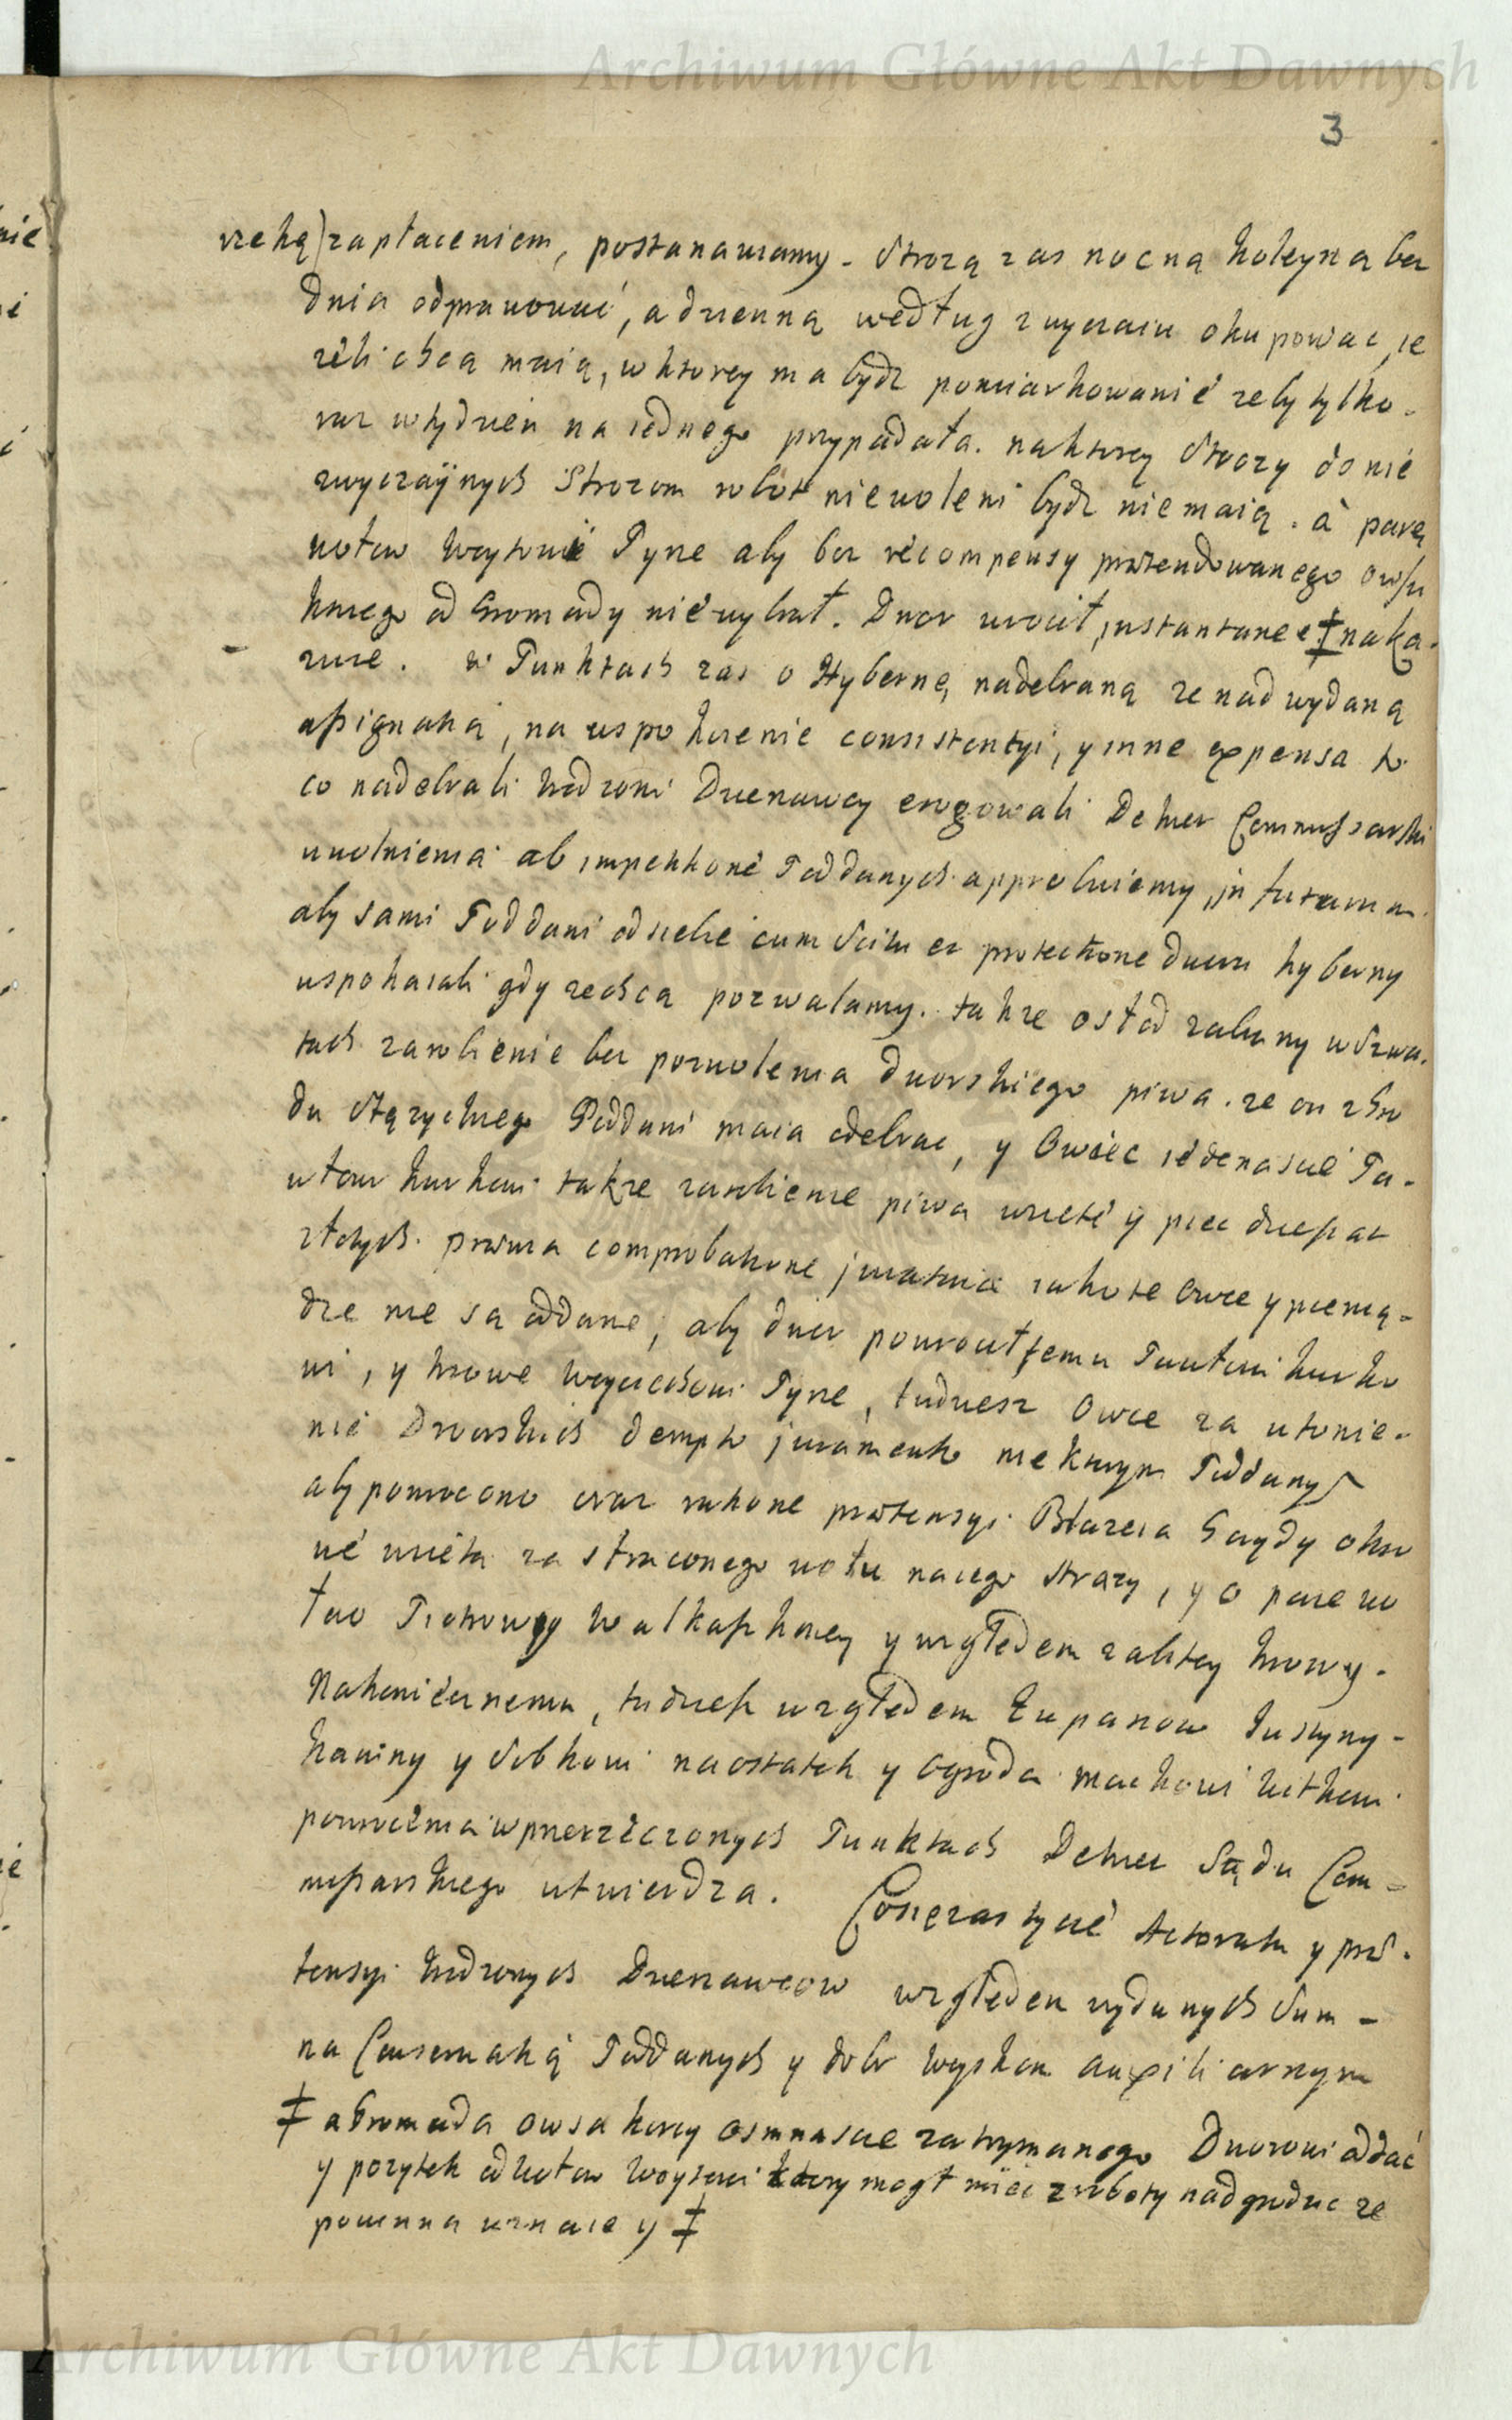 Archiwum Główne Akt Dawnych
3
rzeką) zapłaceniem, postanawiamy. Strożą zas nocną koleyną bez
dnia odprawować, a dzienną według zwyczaiu okupować, ie
żeli chcą maią, w ktorey ma bydz pomiarkowanié zeby tylko
raz w tydzień na iednego przypadała. na ktorey Stroży do nié
zwyczaÿnych Strożom robot niewoleni bydz niemaią. à parę
wołow Woytowi Pyrze aby bez recompensy prætendowanego owsu
kniego od Gromady niewybrał. Dwor wrocił, instantanee ‡ naka-
zuie. w Punktach zas o Hybernę nadebraną ze nad wydaną
assignatią, na uspokoienie consistentyi, y inne expensa to
co nadebrali Urodzoni Dzierzawcy erogowali Dekret Commissarski
uwolnienia ab impetitione Poddanych approbuiemy, in futurum
aby sami Poddani od siebie cum scitu et protectione dworu hyberny
uspokaiali gdy zechcą pozwalamy. także o stod zabrany
tach zarobienie bez pozwolenia dworskiego piwa. ze
du Poddani maią odebrac, y Owiec iedenascié Pa-
włowi kurkowi także zarobienie piwa wzięté ÿ pięc dziesiąt
złotych. prævia comprobatione juratoria iako te Owce y pienią-
dze nie są oddane, aby dwor powrocił temu Pawłowi kurko
wi, y krowę Woyciechowi Pyrze, tudziesz Owce za utonie-
nié Dworskich dempto juramento niektorym Poddanym
aby powrocono oraz ratione prætensyi Błazeia Gaydy
wzięta za straconego wołu nacięgo strazy, y o parę wo
łow Piotrowey Walkaszkowey y względem zabitey krowy
Nakonieznemu, tudziesz względem Zupanow Justyny
y Sobkowi naostatek y Ogroda Mackowi witkowi
powrocenia w przerzeczonych Punktach Dekret Sądu Com-
missarskiego utwierdza. Co się zas tycé Actoratu y præ-
tensyi Urodzonych Dzierzawcow względem wydanych Sum
na Conservatią Poddanych y dobr Woyskom auxiliarnym
‡ a Gromada owsa korcy osmnascie zatrzymanego Dworowi oddać
y pozytek od wołow Woytowi ktory mogł miec z roboty nadgrodzic ze
powinna uznaie y ‡
Archiwum Główne Akt Dawnych